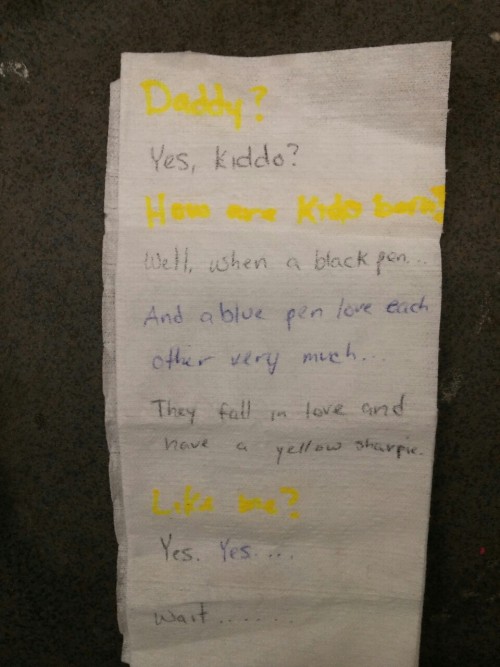 Daddy?
Yes, kiddo?
How are kids born?
Well, when a black pen...
And a blue pen love each
other very much...
They fall in love and
have a yellow sharpie.
Like me?
Yes. Yes....
Wait.......